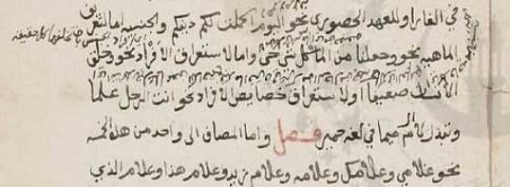 في الغار او للعهد الحضوري نحو اليوم اكملت لكم دينكم والجنسيه اما لتعريف
الماهيه نحو وجعلنا من الما كل شي حي واما لاستغراق الافراد نحو وخلق
الانسان ضعيفا او لاستغراق خصايص الافراد نحو انت الرجل علما
وتبدل لام ال ميما في لغه حمير فصل واما المضاف الى واحد من هذه الخمسه
نحو غلامي وغلامك وغلامه وغلام زيد وغلام هذا وغلام الذي